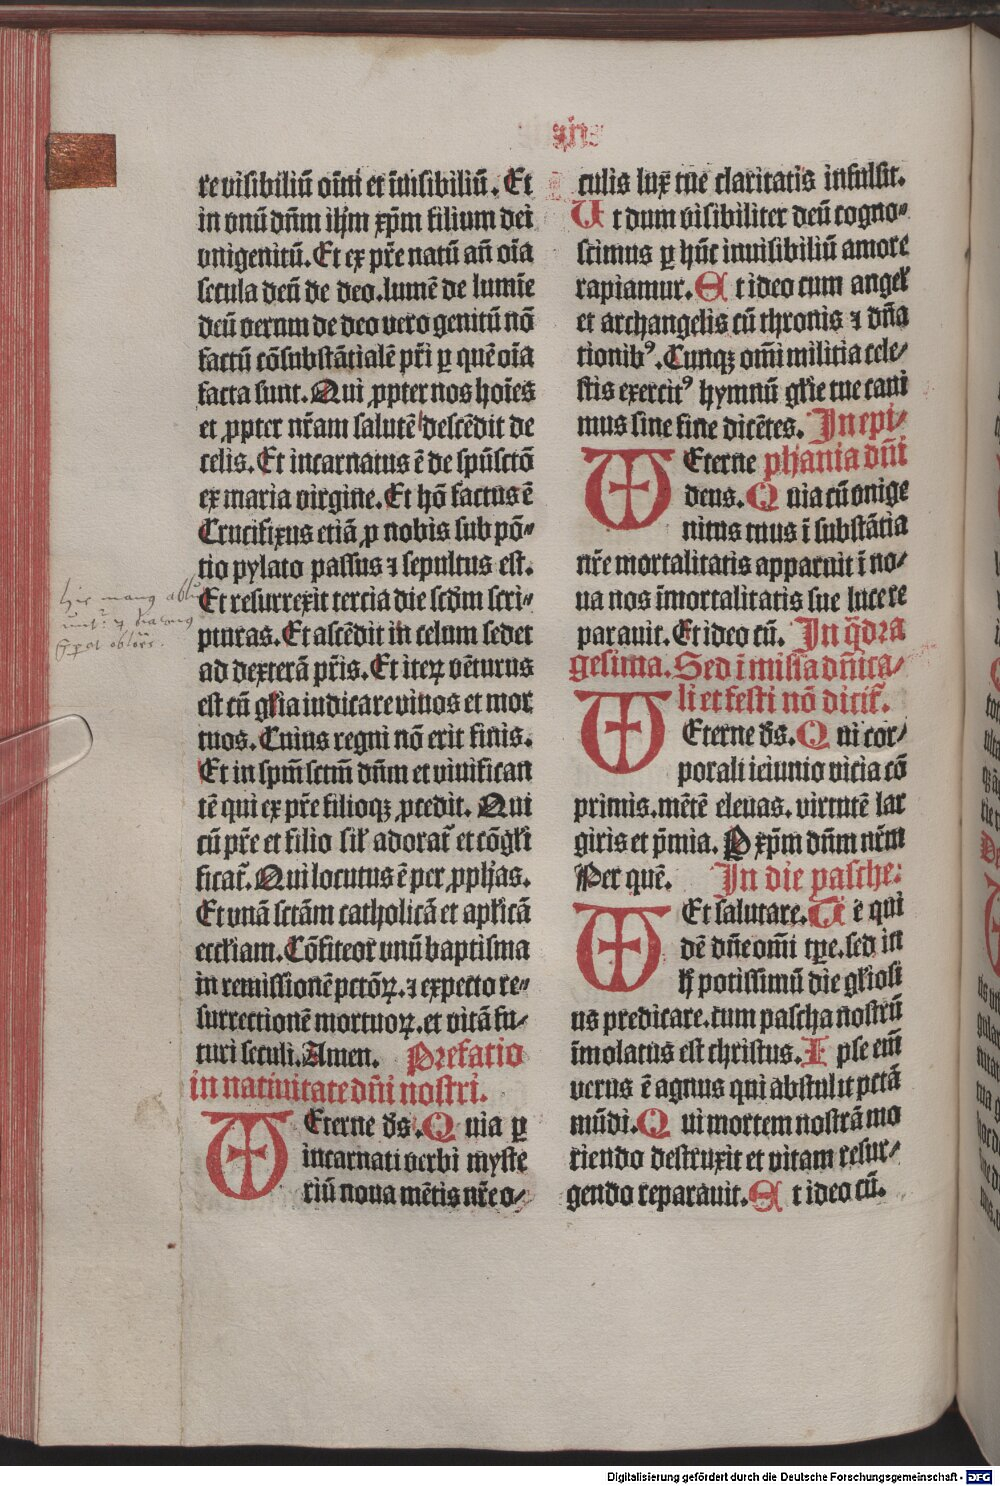 re visibiliū oīni et īuisibiliū. Et
in vnū dn̄m ih̄m xp̄m filium dei
vnigenitū. Et ex pr̄e natū an̄ oīa
secula deū de deo. lumē de lumīe
deū verum de deo vero genitū nō
factū cōsubstātialē pr̄i ꝑ quē oīa
facta sunt. Qui ꝓpter nos hoīes
et ꝓpter nr̄am salutē descēdit de
celis. Et incarnatus ē de spū sctō
ex maria virgine. Et hō factus ē
Crucifixus etiā ꝓ nobis sub pō-
tio pylato passus ⁊ sepultus est.
Et resurrexit tercia die scd̄m scri-
pturas. Et ascēdit in celum sedet
ad dexterā pr̄is. Et iteꝝ vēturus
est cū gl̄ia iudicare viuos et mor
tuos. Cuius regni nō erit finis.
Et in spm̄ sctm̄ dn̄m et viuifican
tē qui ex pr̄e filioqꝫ ꝓcedit. Qui
cū pr̄e et filio sil̄ adorat᷑ et cōgl̄i
ficat᷑. Qui locutus ē per ꝓph̄as.
Et vnā sctām catholicā et apl̄icā
eccl̄iam. Cōfiteor vnū baptisma
in remissionē pctōꝝ. ⁊ expecto re-
surrectionē mortuoꝝ. et vitā fu-
turi seculi. Amen. Prefatio
in natiuitate dn̄i nostri.
Eterne ds̄. Quia ꝑ
incarnati verbi myste
riū noua mētis nr̄e o-
culis lux tue claritatis infulsit.
Ut dum visibiliter deū cogno-
scimus ꝑ hūc inuisibiliū amore
rapiamur. Et ideo cum angel̄
et archangelis cū thronis ⁊ dn̄a
tionibꝰ. Cunqꝫ om̄i militia cele-
stis exercitꝰ hymnū gl̄ie tue cani
mus sine fine dicētes. In epi-
Eterne phania dn̄i
deus. Quia cū vnige
nitus tuus ī substātia
nr̄e mortalitatis apparuit ī no-
ua nos īmortalitatis sue luce re
parauit. Et ideo cū. In q̄dra
gesima. Sed ī missa dn̄ica-
li et festi nō dicit᷑.
Eterne ds̄. Qui cor-
porali ieiunio vicia cō
primis. mētē eleuas. virtutē lar
giris et p̄mia. P xp̄m dn̄m nr̄m
Per quē. In die pasche:
Et salutare. Te qui
dē dn̄e om̄i tp̄e. sed in
h̄ potissimū die gl̄iosi
us predicare. cum pascha nostrū
īmolatus est christus. Ipse em̄
verus ē agnus qui abstulit pctā
mūdi. Qui mortem nostrā mo
riendo destruxit et vitam resur-
gendo reparauit. Et ideo cū.
Digitalisierung gefördert durch die Deutsche Forschungsgemeinschaft - DFG